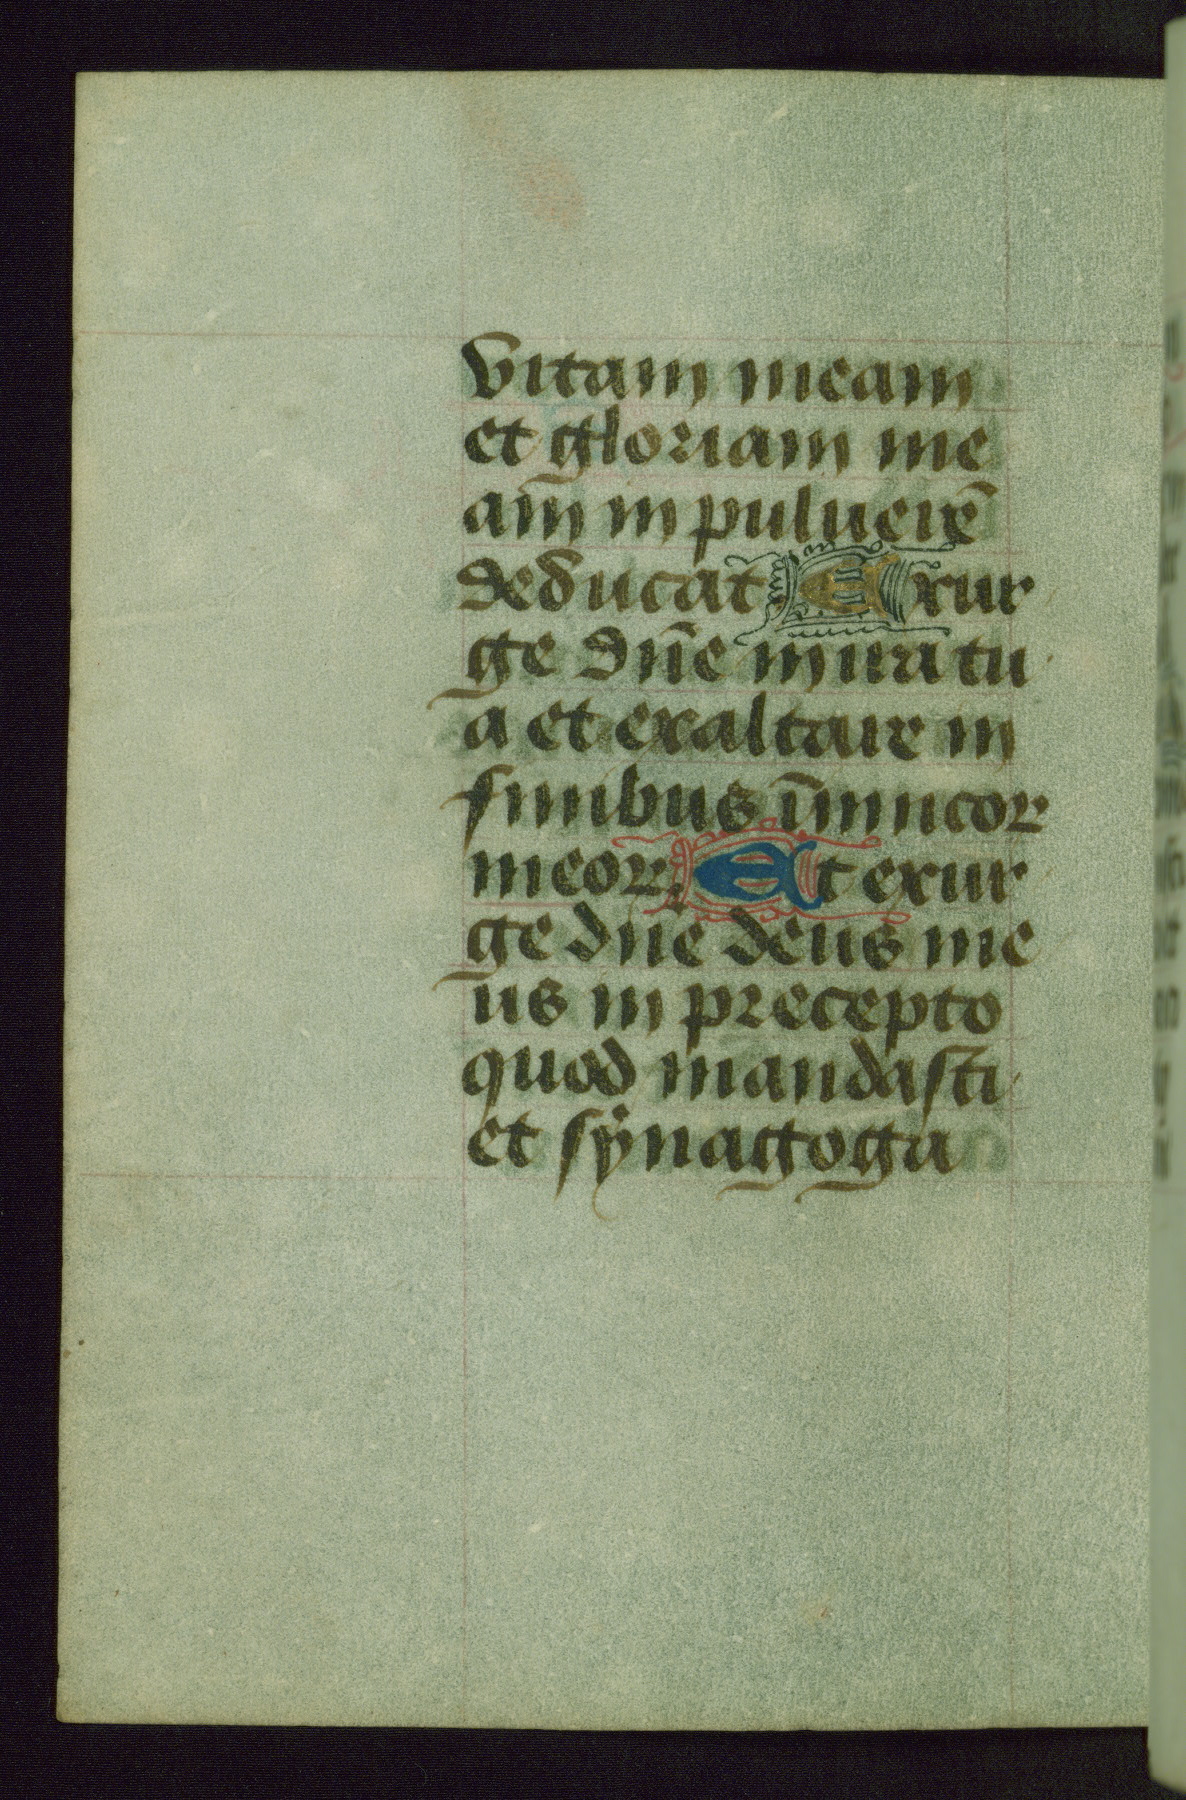 vitam meam
et gloriam me
am in puluerē
deducat. Exur
ge dñe in ira tu
a et exaltare in
finibus inimicor
meor. Et exur
ge dñe deus me
us in precepto
quod mandasti
et synagoga